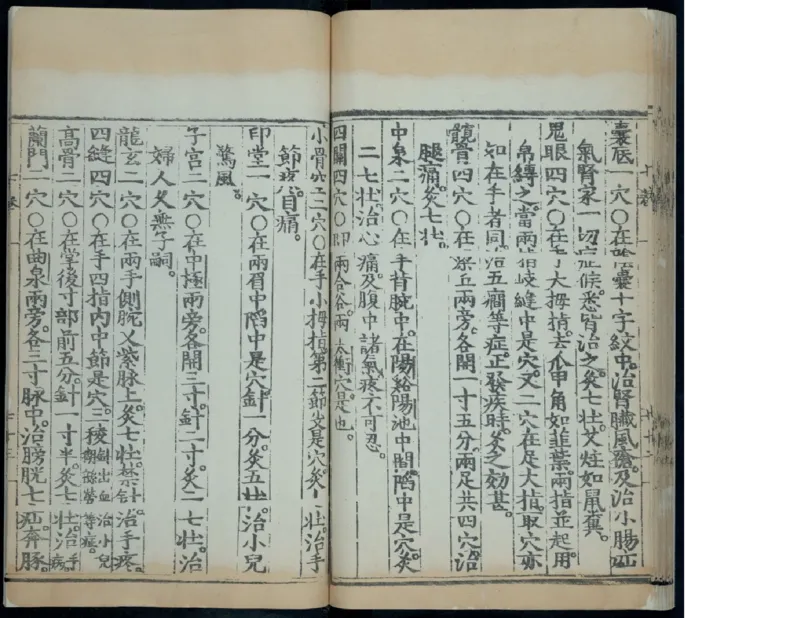 囊底一穴○在陰囊十字紋中治腎臟風瘡及治小腸疝
氣腎家一切症候悉皆治之灸七壯艾炷如鼠糞
鬼眼四穴○在手大拇指去爪甲角如韭葉兩指並起用
帛縛之當兩指岐縫中是穴又二穴在足大指取穴亦
如在手者同治五癇等症正發疾時灸之効甚
髖骨四穴○在梁丘兩旁各開一寸五分兩足共四穴治
腿痛灸七壯
中泉二穴○在手背腕中在陽谿陽池中間陷中是穴灸
二七壯治心痛及腹中諸氣疼不可忍
四關四穴○即兩合谷兩太衝穴是也
小骨空二穴○在手小拇指第二節尖是穴灸七壯治手
節疼目痛
印堂一穴○在兩眉中陷中是穴針一分灸五壯治小兒
驚風
子宮二穴○在中極兩旁各開三寸針二寸灸二七壯治
婦人久無子嗣
龍玄二穴○在兩手側腕叉紫脉上灸七壯禁針治手疼
四縫四穴○在手四指內中節是穴三稜針出血治小兒猢猻勞等症
高骨二穴○在掌後寸部前五分針一寸半灸七壯治手病
蘭門二穴○在曲泉兩旁各三寸脉中治膀胱七疝奔豚